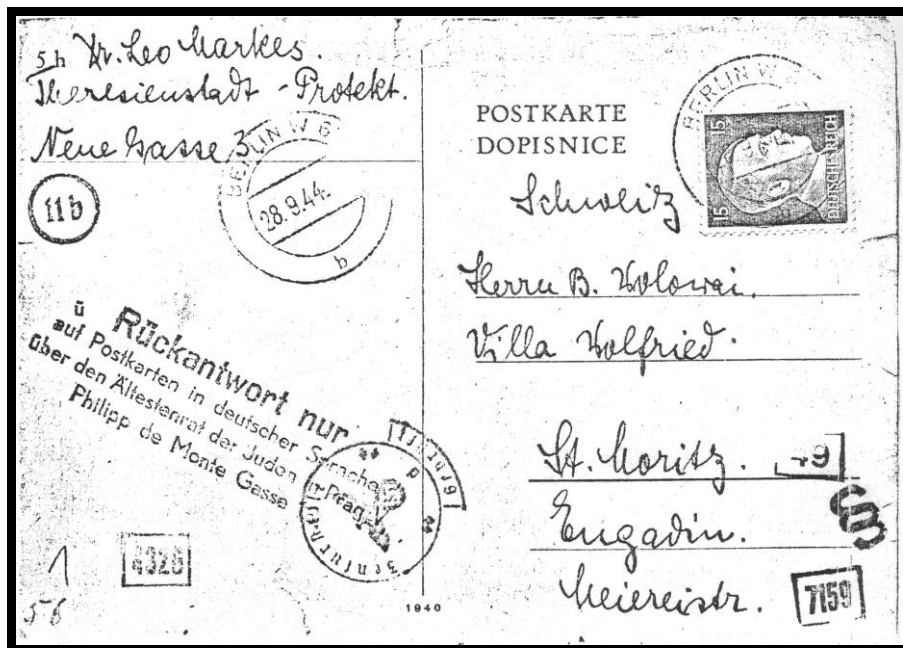 5h Dr. Leo Markes.
Theresienstadt - Protekt.
Neue Gasse 3
BERLIN W
28.9.44.
b
11b
ü Rückantwort nur
auf Postkarten in deutscher Sprache
über den Ältestenrat der Juden Prag
Philipp de Monte Gasse
4326
1
56
1940
POSTKARTE
DOPISNICE
BERLIN W
15 15
DEUTSCHES REICH
Schweiz
Herrn B.
Villa Wolfried.
St. Moritz.
Engadin.
Meiereistr.
7159